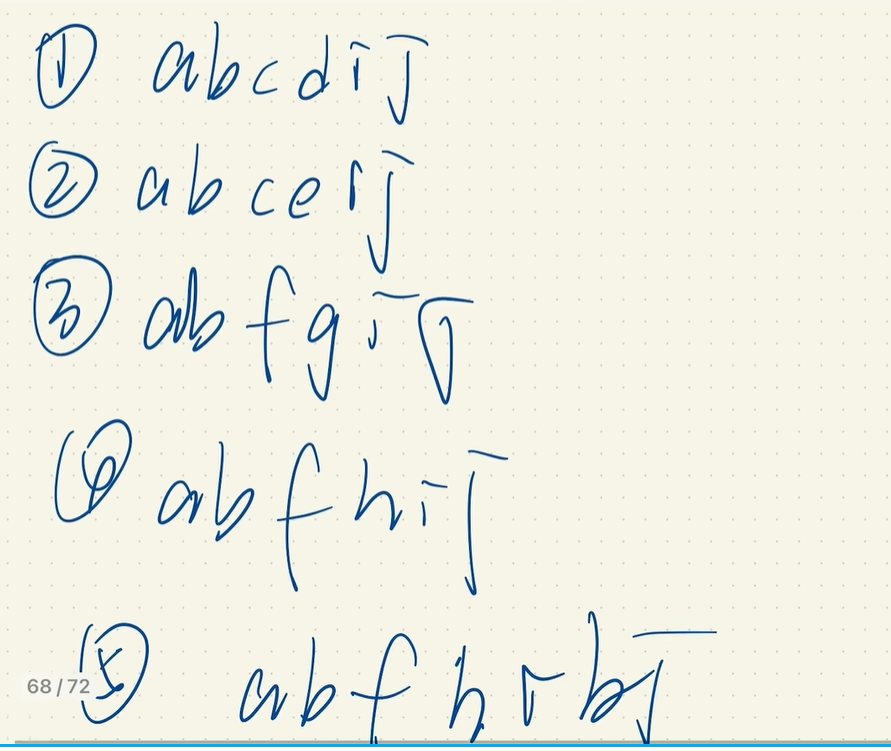 ① abcdij
② abceij
③ abfgij
④ abfhij
⑤ abfhibj
68/72